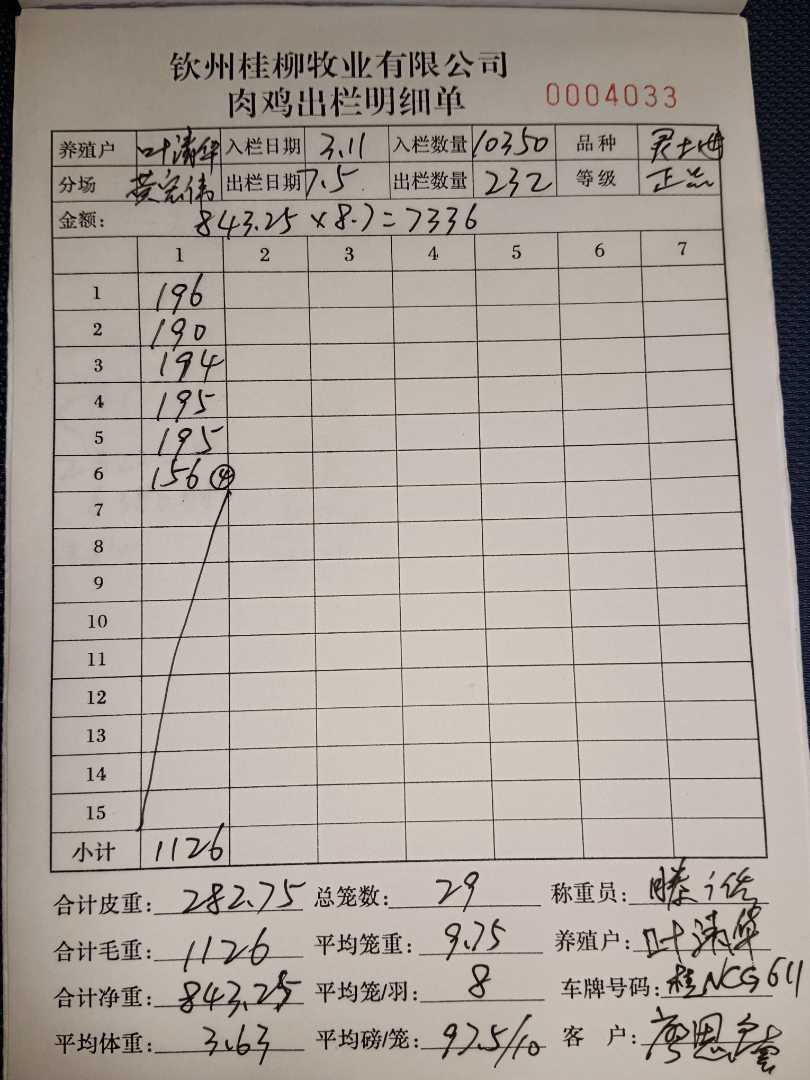 钦州桂柳牧业有限公司
肉鸡出栏明细单 0004033
养殖户 叶清华 入栏日期 3.11 入栏数量 10350 品种
分场 黄宏伟 出栏日期 7.5 出栏数量 232 等级 正品
金额: 843.25×8.7=7336
1 2 3 4 5 6 7
1 196
2 190
3 194
4 195
5 195
6 156 ④
7
8
9
10
11
12
13
14
15
小计 1126
合计皮重: 282.75 总笼数: 29 称重员: 滕
合计毛重: 1126 平均笼重: 9.75 养殖户: 叶清华
合计净重: 843.25 平均笼/羽: 8 车牌号码: 桂NCG611
平均体重: 3.63 平均磅/笼: 97.5/10 客 户: 廖恩